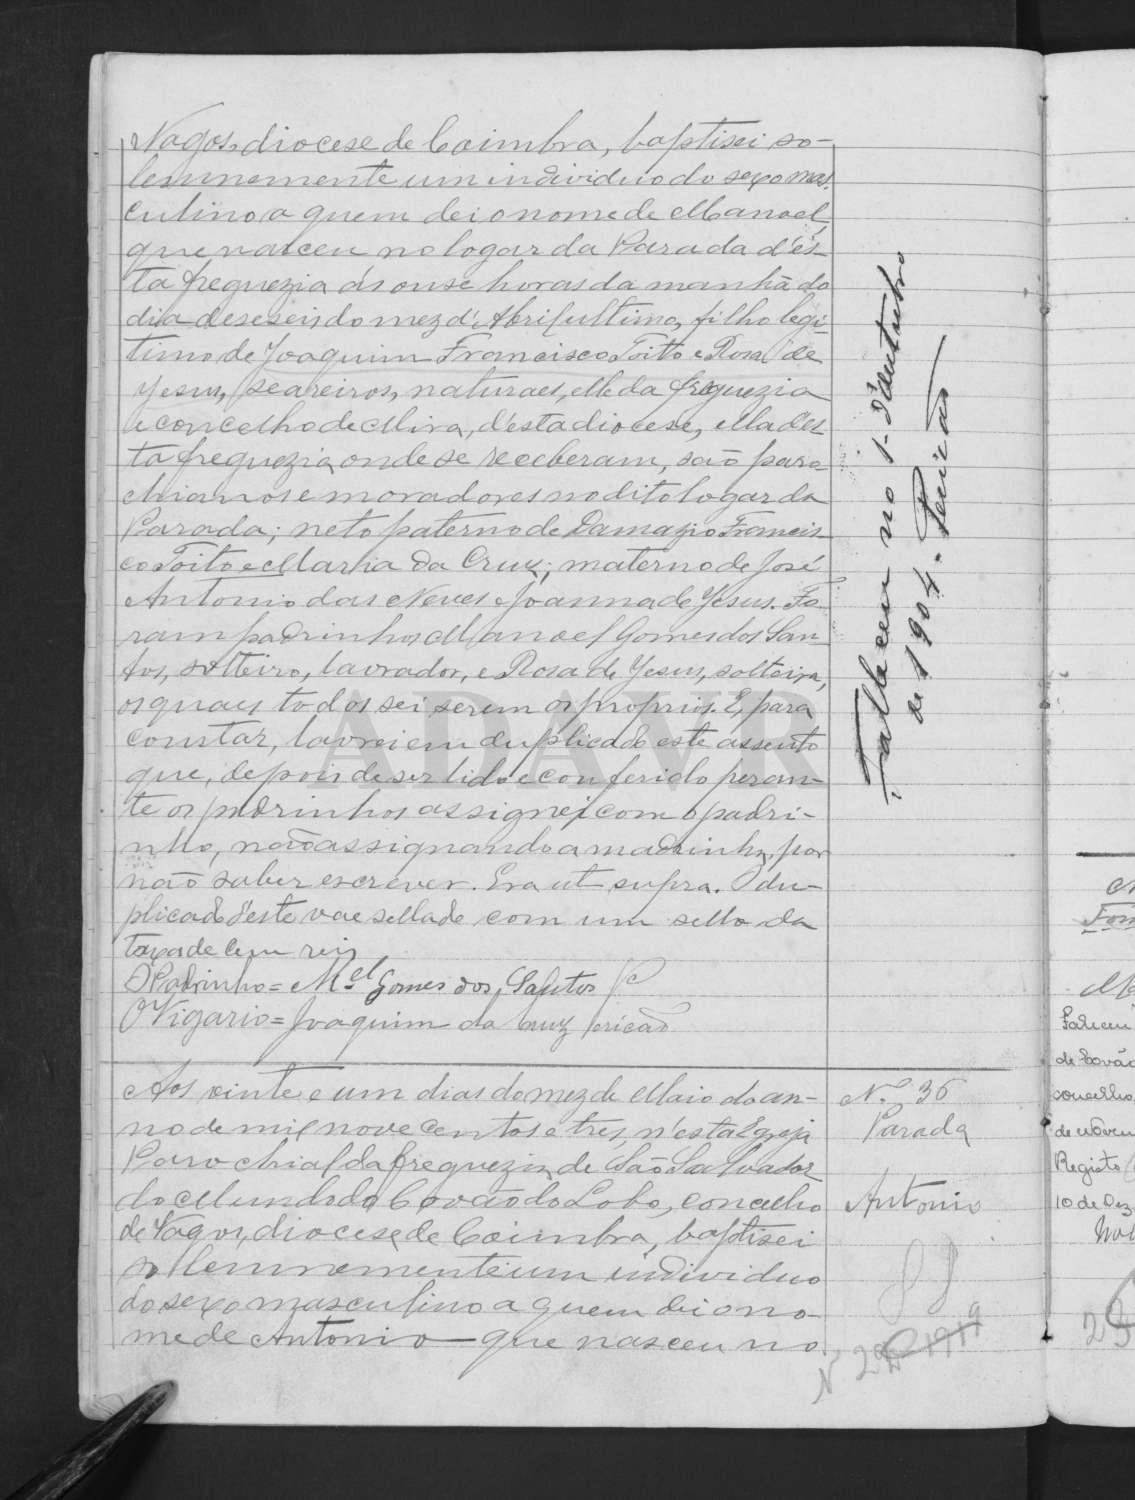 Vagos, diocese de Coimbra, baptisei so-
lemnemente um individuo do sexo mas-
culino a quem dei o nome de Manoel,
que nasceu no logar da Parada d'és-
ta freguezia ás onse horas da manhã do
dia deseseis do mez d'Abril ultimo, filho legi-
timo de Joaquim Francisco Toito e Rosa de
Jesus, seareiros, naturaes, elle da freguezia
e concelho de Mira, d'esta diocese, ella d'es-
ta freguezia onde se receberam, são paro-
chianos e moradores no dito logar da
Parada; neto paterno de Damazio Francis-
co Toito e Maria da Cruz; materno de José
Antonio das Neves e Joanna de Jesus. Fo-
ram padrinhos Manoel Gomes dos San-
tos, solteiro, lavrador, e Rosa de Jesus, solteira,
os quaes todos sei serem os proprios. E, para
constar, lavrei em duplicado este assento
que, depois de ser lido e conferido peran-
te os padrinhos assignei com o padri-
nho, não assignando a madrinha, por
não saber escrever. Era ut supra. O du-
plicado d'este vae sellado com um sello da
taxa de cem reis
O Padrinho = M.el Gomes dos Santos
O Vigario = Joaquim da Cruz Pericão
Falleceu no 1 d'Outubro
de 1904. Pericão
Aos vinte e um dias do mez de Maio do an-
no de mil nove centos e tres, n'esta Egreja
Parochial da freguezia de São Salvador
do Mundo do Covão do Lobo, concelho
de Vagos, diocese de Coimbra, baptisei
sollemnemente um individuo
do sexo masculino a quem dei o no-
me de Antonio que nasceu no
N.º 36
Parada
Antonio
ADAVR
Faleceu
de Covão
concelho
Registo
10 de Dez